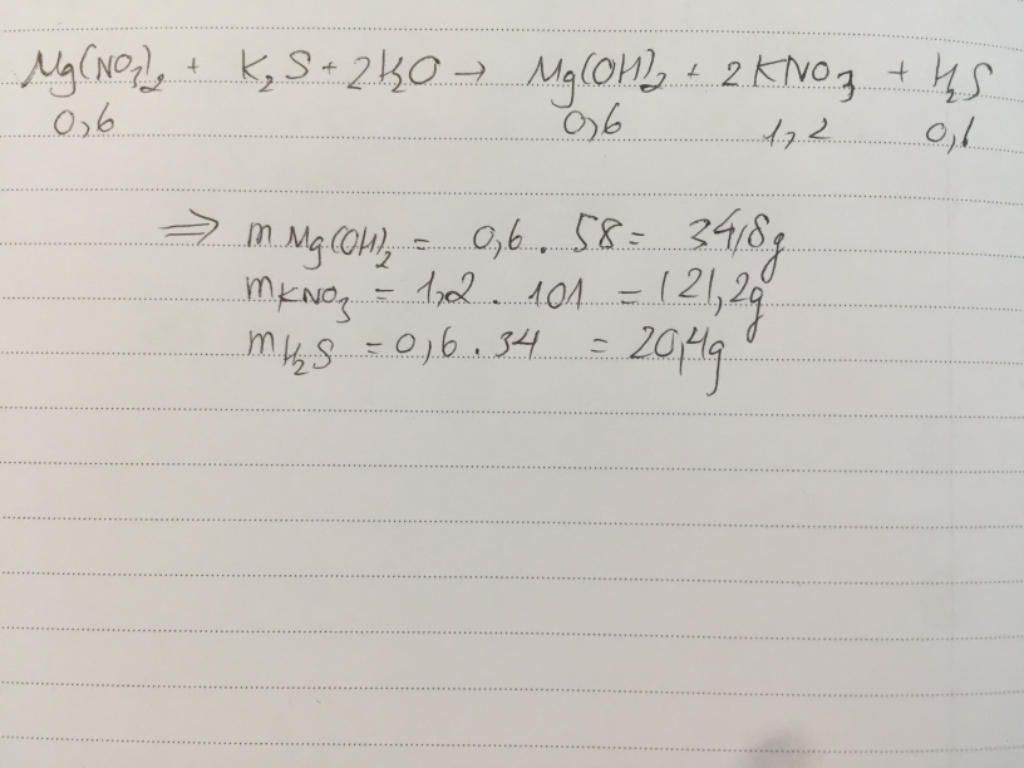 Mg(NO₃)₂ + K₂S + 2H₂O → Mg(OH)₂ + 2KNO₃ + H₂S
0,6 0,6 1,2 0,6
⇒ m Mg(OH)₂ = 0,6 . 58 = 34,8g
m KNO₃ = 1,2 . 101 = 121,2g
m H₂S = 0,6 . 34 = 20,4g